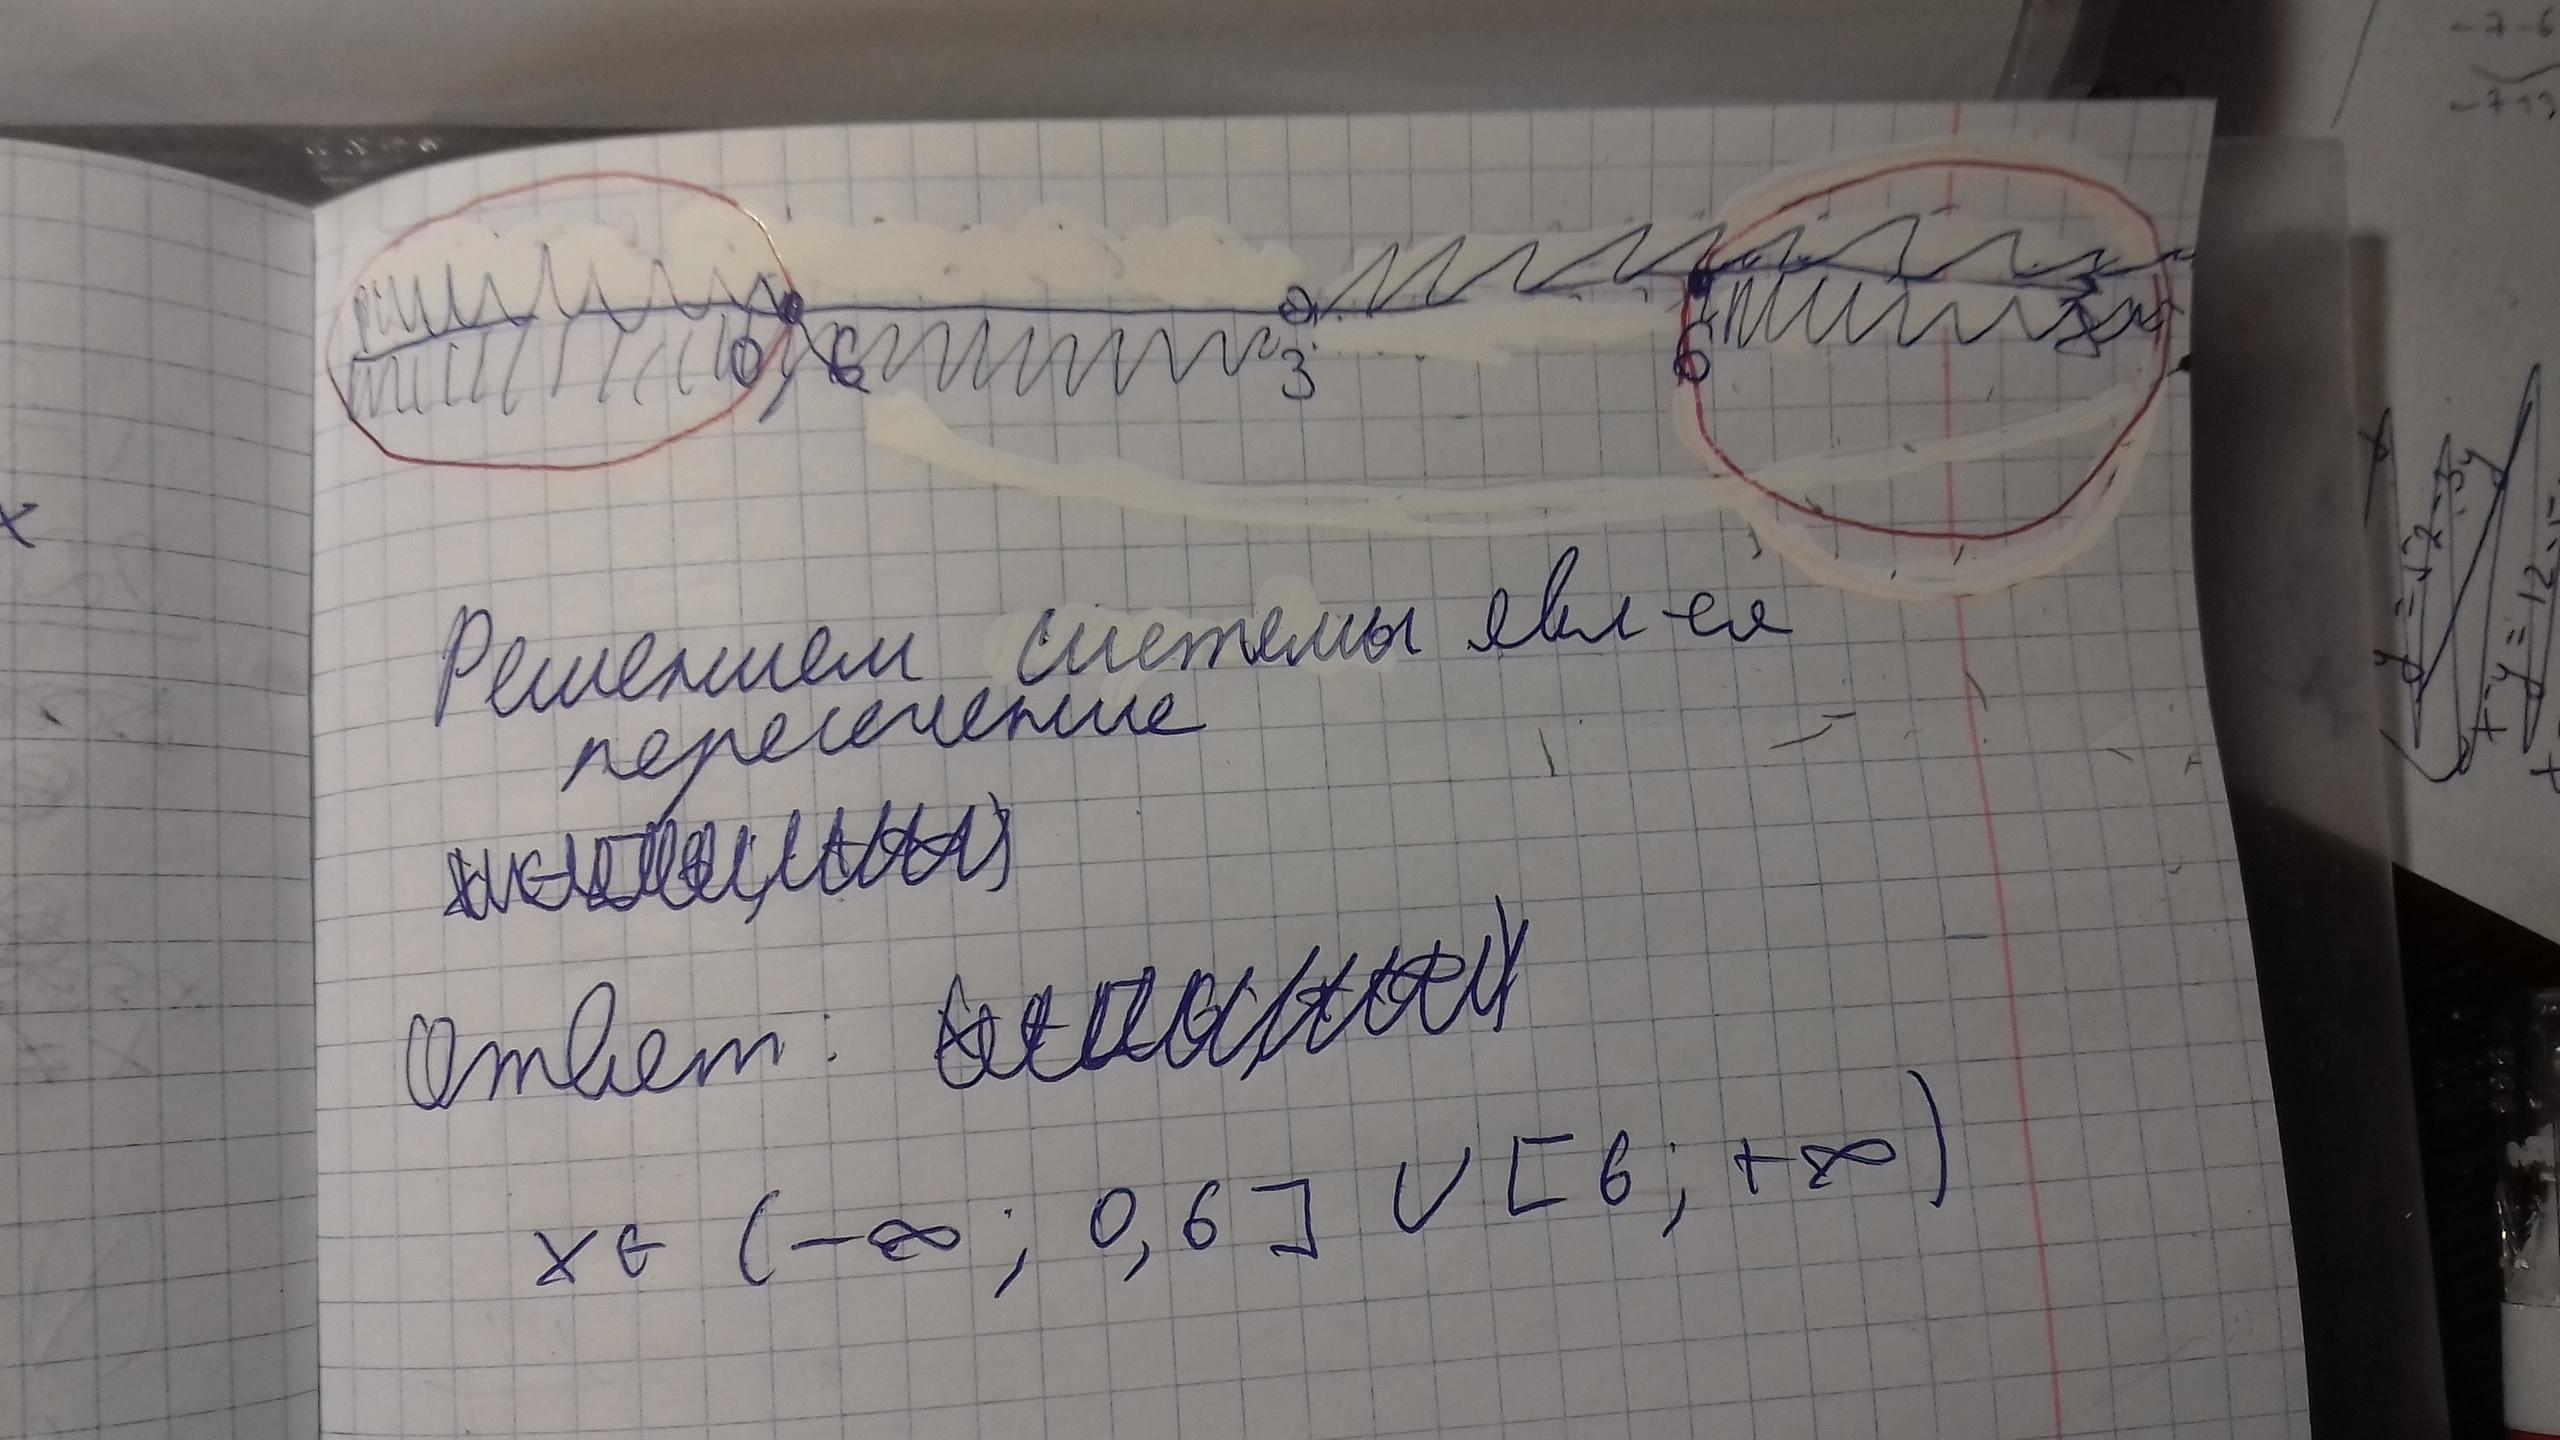 0,6 3 6
Решением системы явл-ся
пересечение
Ответ:
x ∈ (-∞; 0,6] ∪ [6; +∞)
x
-7-6
y = 12-3y